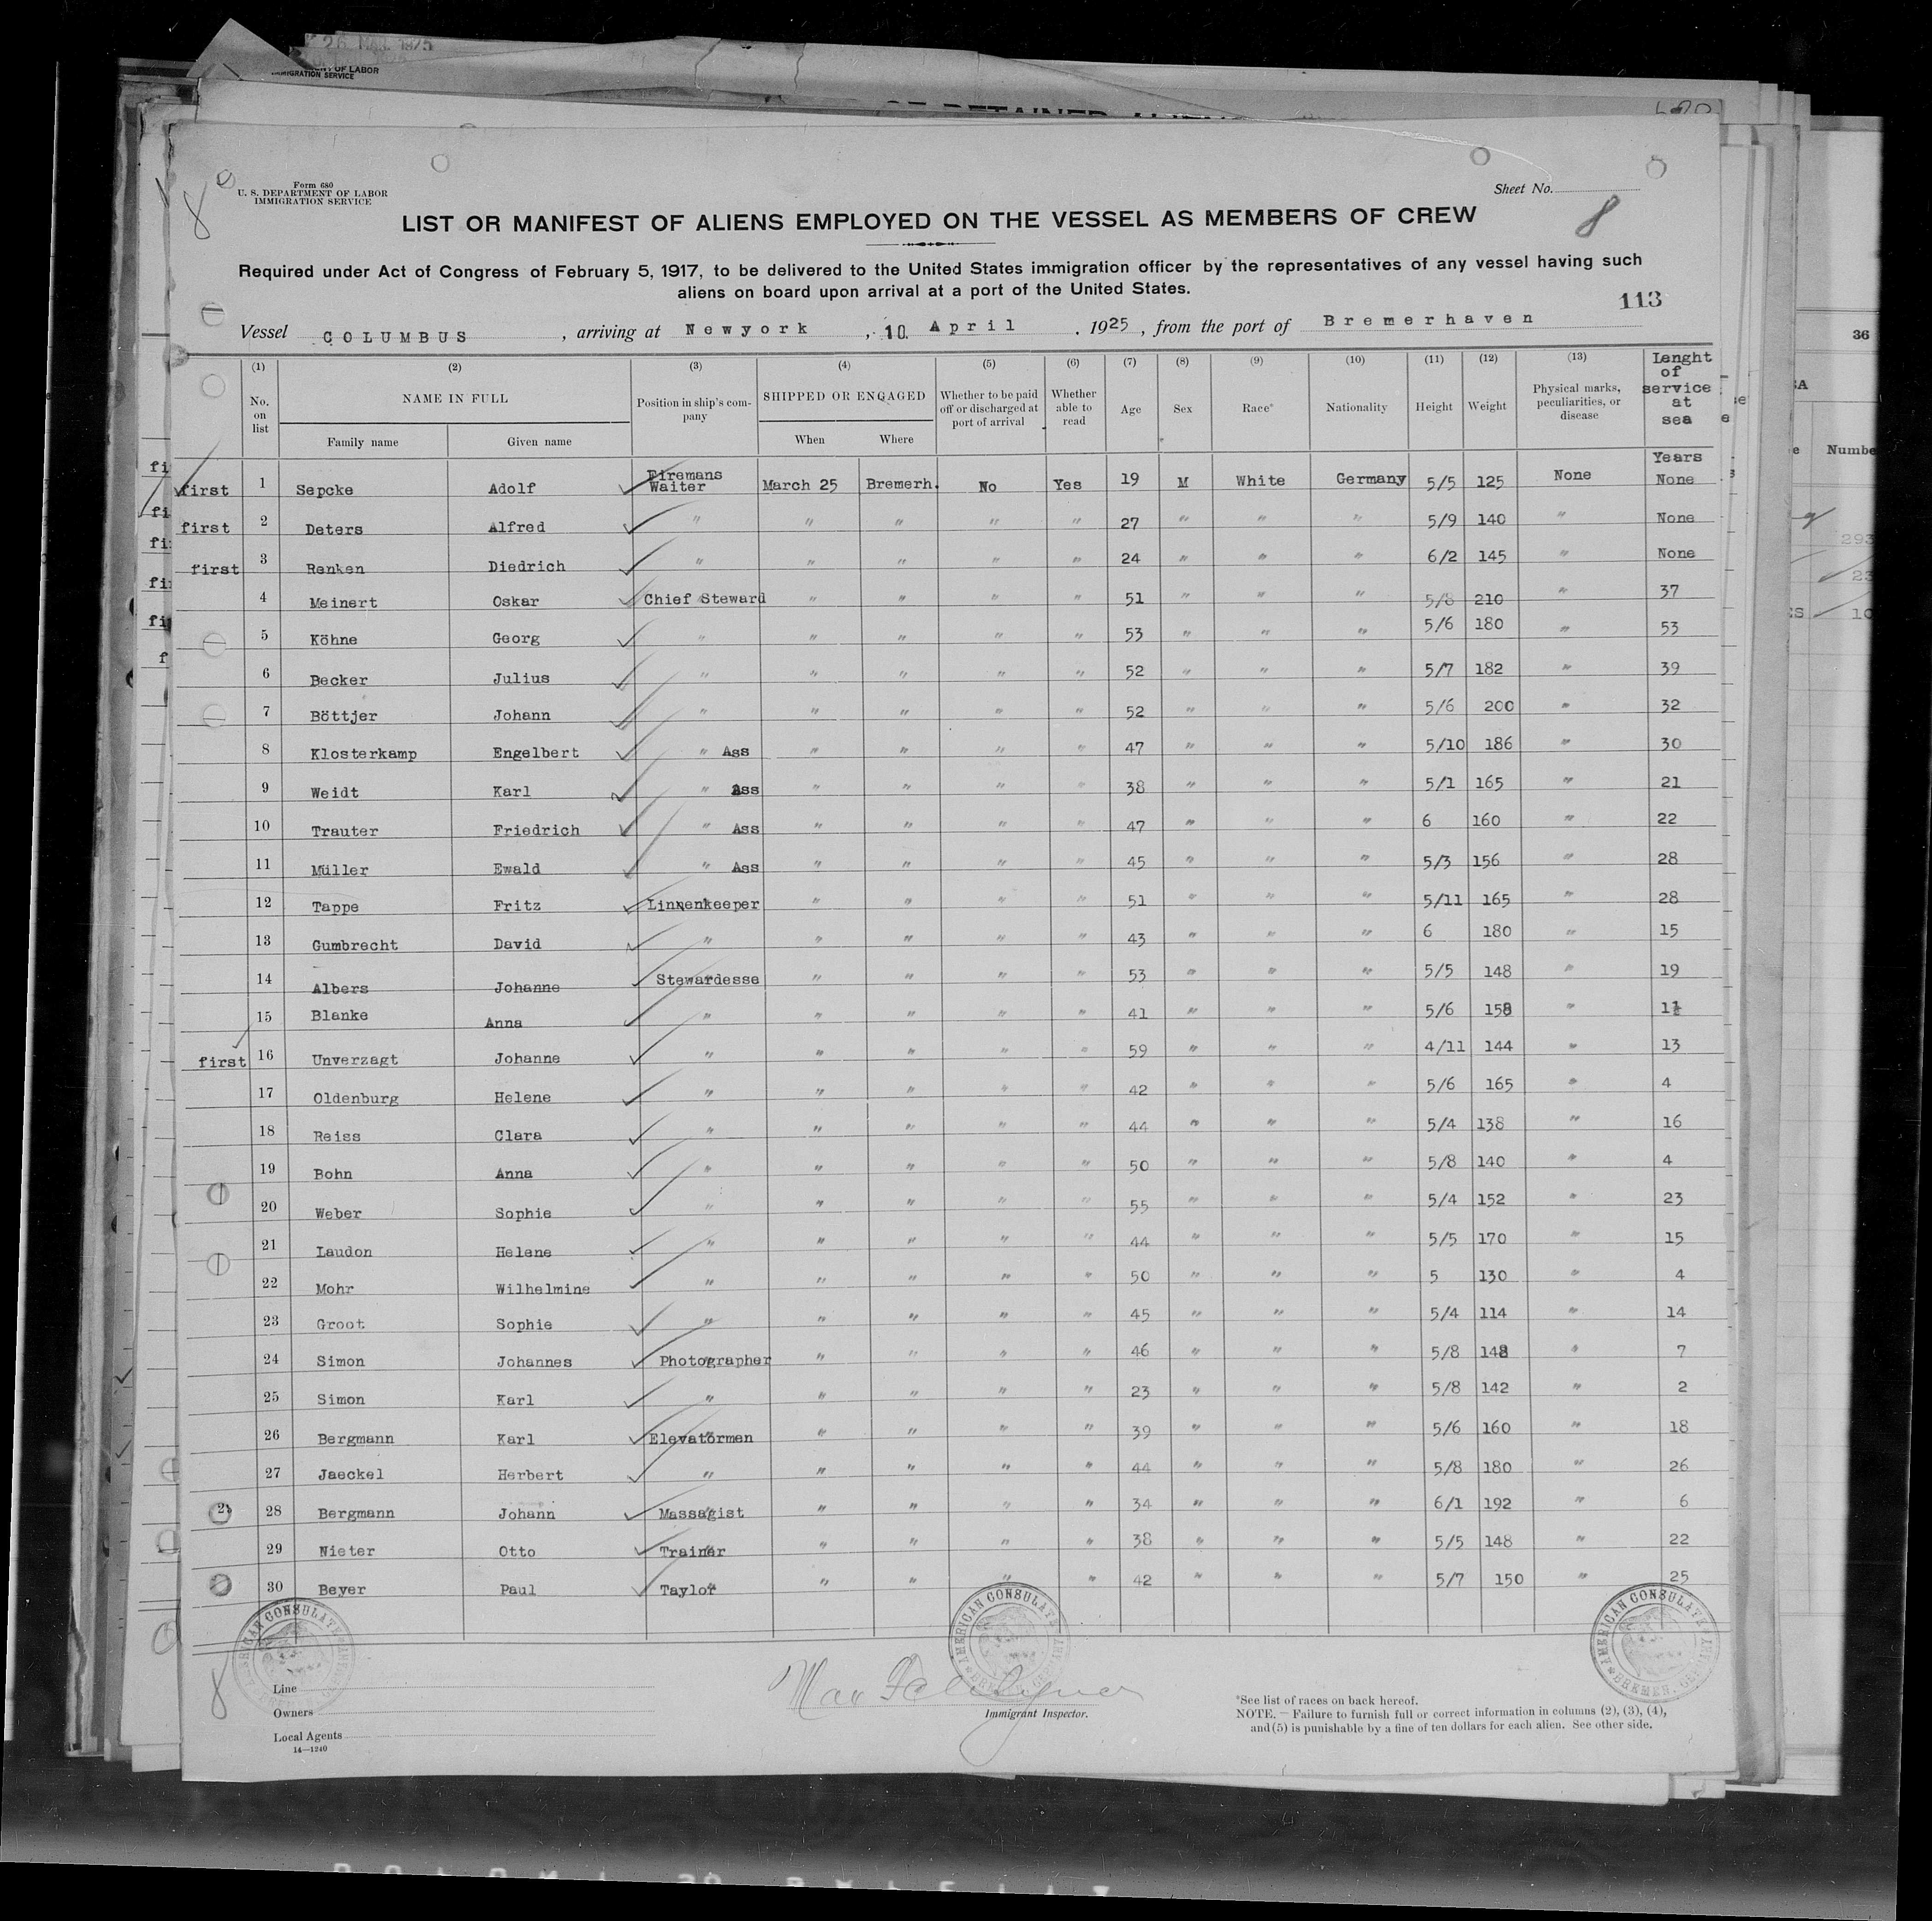 26 MAR 1925
DEPARTMENT OF LABOR
IMMIGRATION SERVICE
Form 680
U. S. DEPARTMENT OF LABOR
IMMIGRATION SERVICE
Sheet No.
8
8
LIST OR MANIFEST OF ALIENS EMPLOYED ON THE VESSEL AS MEMBERS OF CREW
Required under Act of Congress of February 5, 1917, to be delivered to the United States immigration officer by the representatives of any vessel having such
aliens on board upon arrival at a port of the United States.
113
Vessel COLUMBUS, arriving at Newyork, 10. April, 1925, from the port of Bremerhaven
(1) (2) (3) (4) (5) (6) (7) (8) (9) (10) (11) (12) (13)
No. on list NAME IN FULL Position in ship's company SHIPPED OR ENGAGED Whether to be paid off or discharged at port of arrival Whether able to read Age Sex Race* Nationality Height Weight Physical marks, peculiarities, or disease Lenght of service at sea
Family name Given name When Where
Years
first 1 Sepcke Adolf Firemans Waiter March 25 Bremerh. No Yes 19 M White Germany 5/5 125 None None
first 2 Deters Alfred " " " " " 27 " " " 5/9 140 " None
first 3 Renken Diedrich " " " " " 24 " " " 6/2 145 " None
4 Meinert Oskar Chief Steward " " " " 51 " " " 5/8 210 " 37
5 Köhne Georg " " " " " 53 " " " 5/6 180 " 53
6 Becker Julius " " " " " 52 " " " 5/7 182 " 39
7 Böttjer Johann " " " " " 52 " " " 5/6 200 " 32
8 Klosterkamp Engelbert " Ass " " " " 47 " " " 5/10 186 " 30
9 Weidt Karl " Ass " " " " 38 " " " 5/1 165 " 21
10 Trauter Friedrich " Ass " " " " 47 " " " 6 160 " 22
11 Müller Ewald " Ass " " " " 45 " " " 5/3 156 " 28
12 Tappe Fritz Linnenkeeper " " " " 51 " " " 5/11 165 " 28
13 Gumbrecht David " " " " " 43 " " " 6 180 " 15
14 Albers Johanne Stewardesse " " " " 53 " " " 5/5 148 " 19
15 Blanke Anna " " " " " 41 " " " 5/6 158 " 1½
first 16 Unverzagt Johanne " " " " " 59 " " " 4/11 144 " 13
17 Oldenburg Helene " " " " " 42 " " " 5/6 165 " 4
18 Reiss Clara " " " " " 44 " " " 5/4 138 " 16
19 Bohn Anna " " " " " 50 " " " 5/8 140 " 4
20 Weber Sophie " " " " " 55 " " " 5/4 152 " 23
21 Laudon Helene " " " " " 44 " " " 5/5 170 " 15
22 Mohr Wilhelmine " " " " " 50 " " " 5 130 " 4
23 Groot Sophie " " " " " 45 " " " 5/4 114 " 14
24 Simon Johannes Photographer " " " " 46 " " " 5/8 148 " 7
25 Simon Karl " " " " " 23 " " " 5/8 142 " 2
26 Bergmann Karl Elevatormen " " " " 39 " " " 5/6 160 " 18
27 Jaeckel Herbert " " " " " 44 " " " 5/8 180 " 26
28 Bergmann Johann Massagist " " " " 34 " " " 6/1 192 " 6
29 Nieter Otto Trainer " " " " 38 " " " 5/5 148 " 22
30 Beyer Paul Taylor " " " " 42 " " " 5/7 150 " 25
AMERICAN CONSULATE
AMERICAN CONSULATE BREMEN, GERMANY
AMERICAN CONSULATE BREMEN, GERMANY
8
Line
Owners
Local Agents
14—1240
Immigrant Inspector.
*See list of races on back hereof.
NOTE.—Failure to furnish full or correct information in columns (2), (3), (4),
and (5) is punishable by a fine of ten dollars for each alien. See other side.
36
Numbe